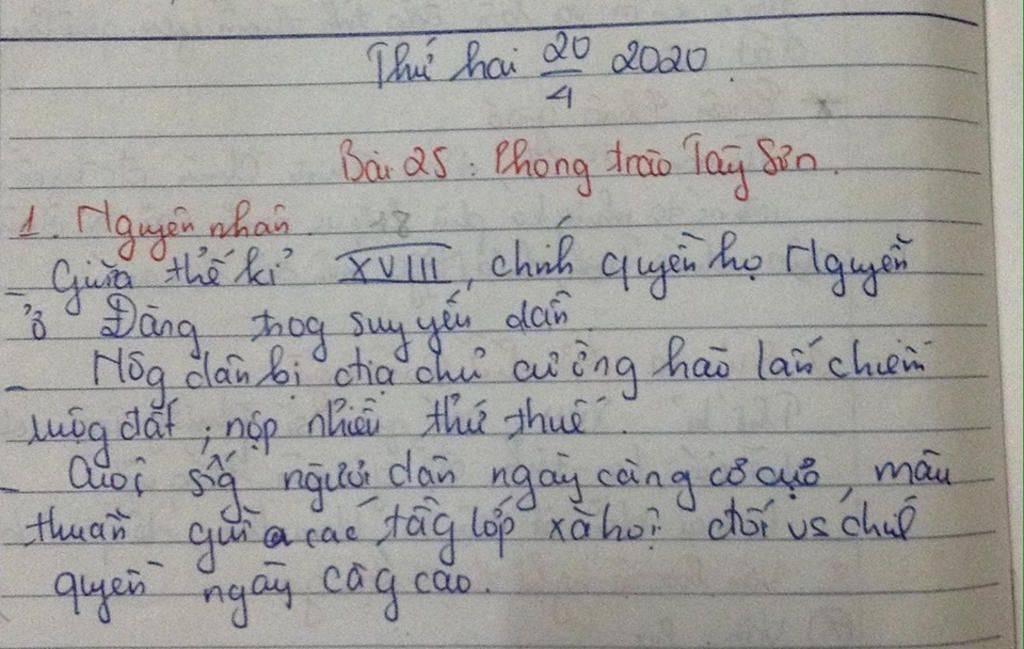 Thứ hai 20/4 2020.
Bài 25: Phong trào Tây Sơn.
1. Nguyên nhân.
- Giữa thế kỉ XVIII, chính quyền họ Nguyễn
ở Đàng trog suy yếu dần.
- Nôg dân bị địa chủ cường hào lấn chiếm
ruộg đất, nộp nhiều thứ thuế.
- Cuộc sốg người dân ngày càng cơ cực, mâu
thuẫn giữa các tầg lớp xã hội đối vs chíh
quyền ngày càg cao.